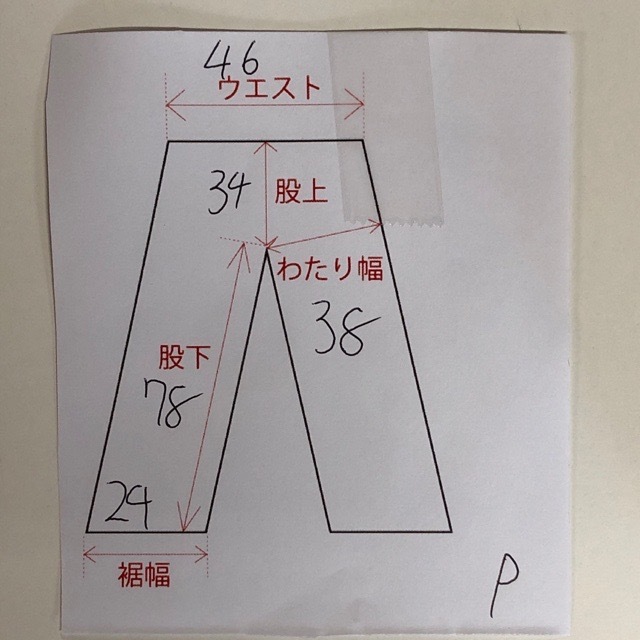 46
ウエスト
34
股上
わたり幅
38
股下
78
24
裾幅
P